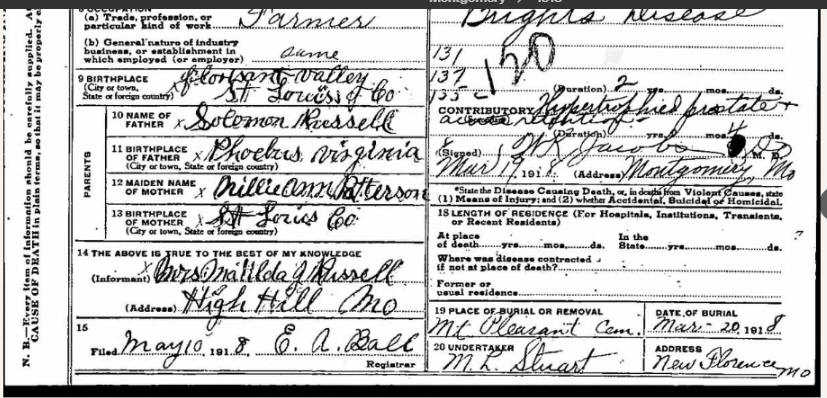 Montgomery
OCCUPATION
(a) Trade, profession, or
particular kind of work Farmer
(b) General nature of industry
business, or establishment in
which employed (or employer) same
9 BIRTHPLACE
(City or town,
State or foreign country)
Florisant Valley
St Louis Co
PARENTS
10 NAME OF
FATHER x Solomon Russell
11 BIRTHPLACE
OF FATHER x Phoebus, Virginia
(City or town, State or foreign country)
12 MAIDEN NAME
OF MOTHER x Millie Ann Patterson
13 BIRTHPLACE
OF MOTHER x St Louis Co
(City or town, State or foreign country)
14 THE ABOVE IS TRUE TO THE BEST OF MY KNOWLEDGE
(Informant) x Mrs Matilda J Russell
(Address) High Hill Mo
15
Filed May 10, 1918, E. A. Ball
Registrar
N. B.—Every item of information should be carefully supplied.
CAUSE OF DEATH in plain terms, so that it may be properly
Brights Disease
131
137
120
135
(Duration) 2 yrs. mos. ds.
CONTRIBUTORY Hypertrophied prostate +
retention
(Duration) yrs. mos. 4 ds.
(Signed) W R Jacobs M. D.
Mar 19, 1918 (Address) Montgomery Mo
*State the Disease Causing Death, or, in deaths from Violent Causes, state
(1) Means of Injury; and (2) whether Accidental, Suicidal or Homicidal.
18 LENGTH OF RESIDENCE (For Hospitals, Institutions, Transients,
or Recent Residents)
At place
of death yrs. mos. ds.
In the
State yrs. mos. ds.
Where was disease contracted
if not at place of death?
Former or
usual residence
19 PLACE OF BURIAL OR REMOVAL
Mt Pleasant Cem.
DATE OF BURIAL
Mar - 20, 1918
20 UNDERTAKER
M. L. Stuart
ADDRESS
New Florence Mo